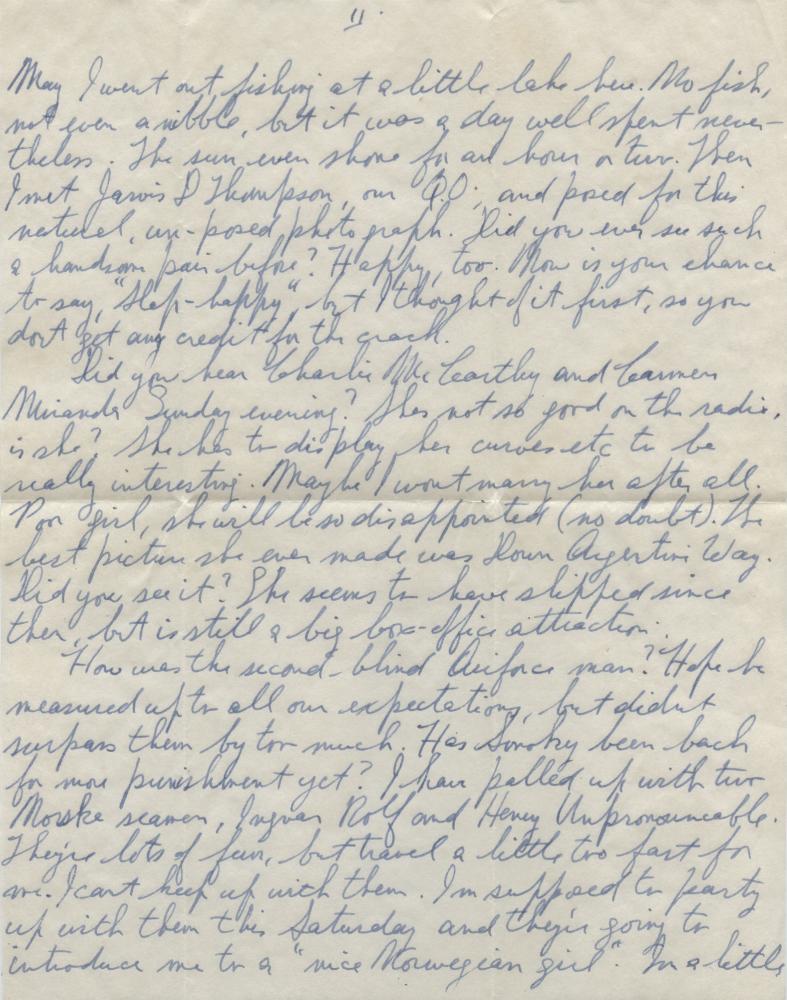 11.
May I went out fishing at a little lake here. No fish,
not even a nibble, but it was a day well spent never-
theless. The sun even shone for an hour or two. Then
I met Jarvis D Thompson, our Q.O., and posed for this
natural, un-posed photograph. Did you ever see such
a handsome pair before? Happy, too. Now is your chance
to say, "Slap-happy", but I thought of it first, so you
don't get any credit for the crack.
Did you hear Charlie McCarthy and Carmen
Miranda Sunday evening? Shes not so good on the radio,
is she? She has to display her curves etc to be
really interesting. Maybe I wont marry her after all.
Poor girl, she will be so disappointed (no doubt). The
best picture she ever made was Down Argentine Way.
Did you see it? She seems to have slipped since
then, but is still a big box-office attraction.
How was the second-blind Airforce man? Hope he
measured up to all our expectations, but didn't
surpass them by too much. Has been back
for more punishment yet? I have palled up with two
Norske seamen, Ingvar Rolf and Henry Unpronounceable.
They're lots of fun, but travel a little too fast for
me. I cant keep up with them. I'm supposed to party
up with them this Saturday and they're going to
introduce me to a "nice Norwegian girl". In a little